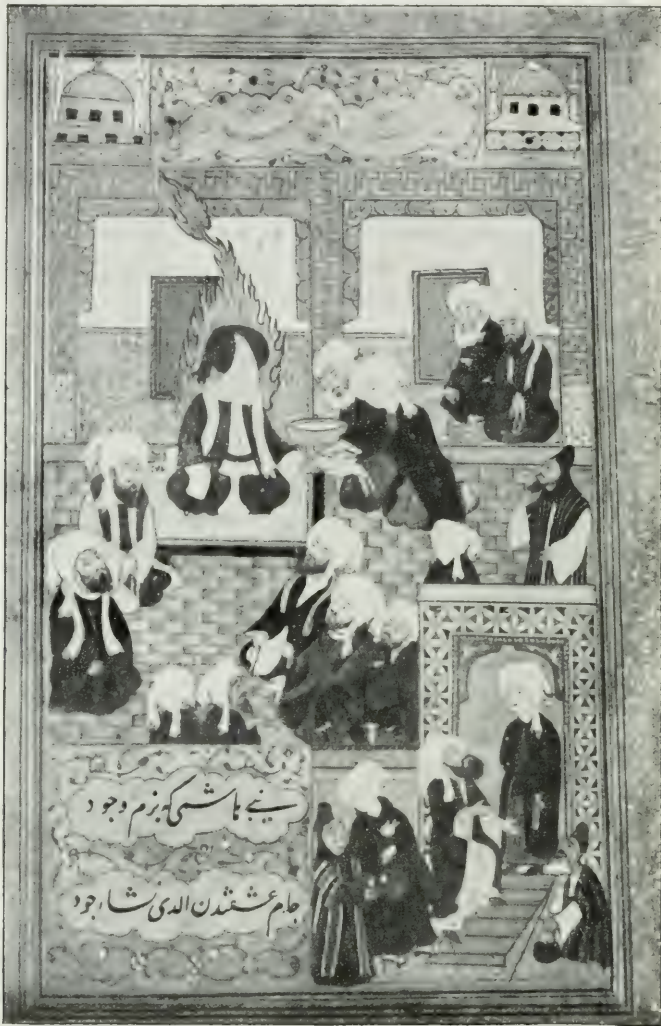 نبئ هاشمی که بزم وجود
جام عشقندن الدی نشاۀ جود